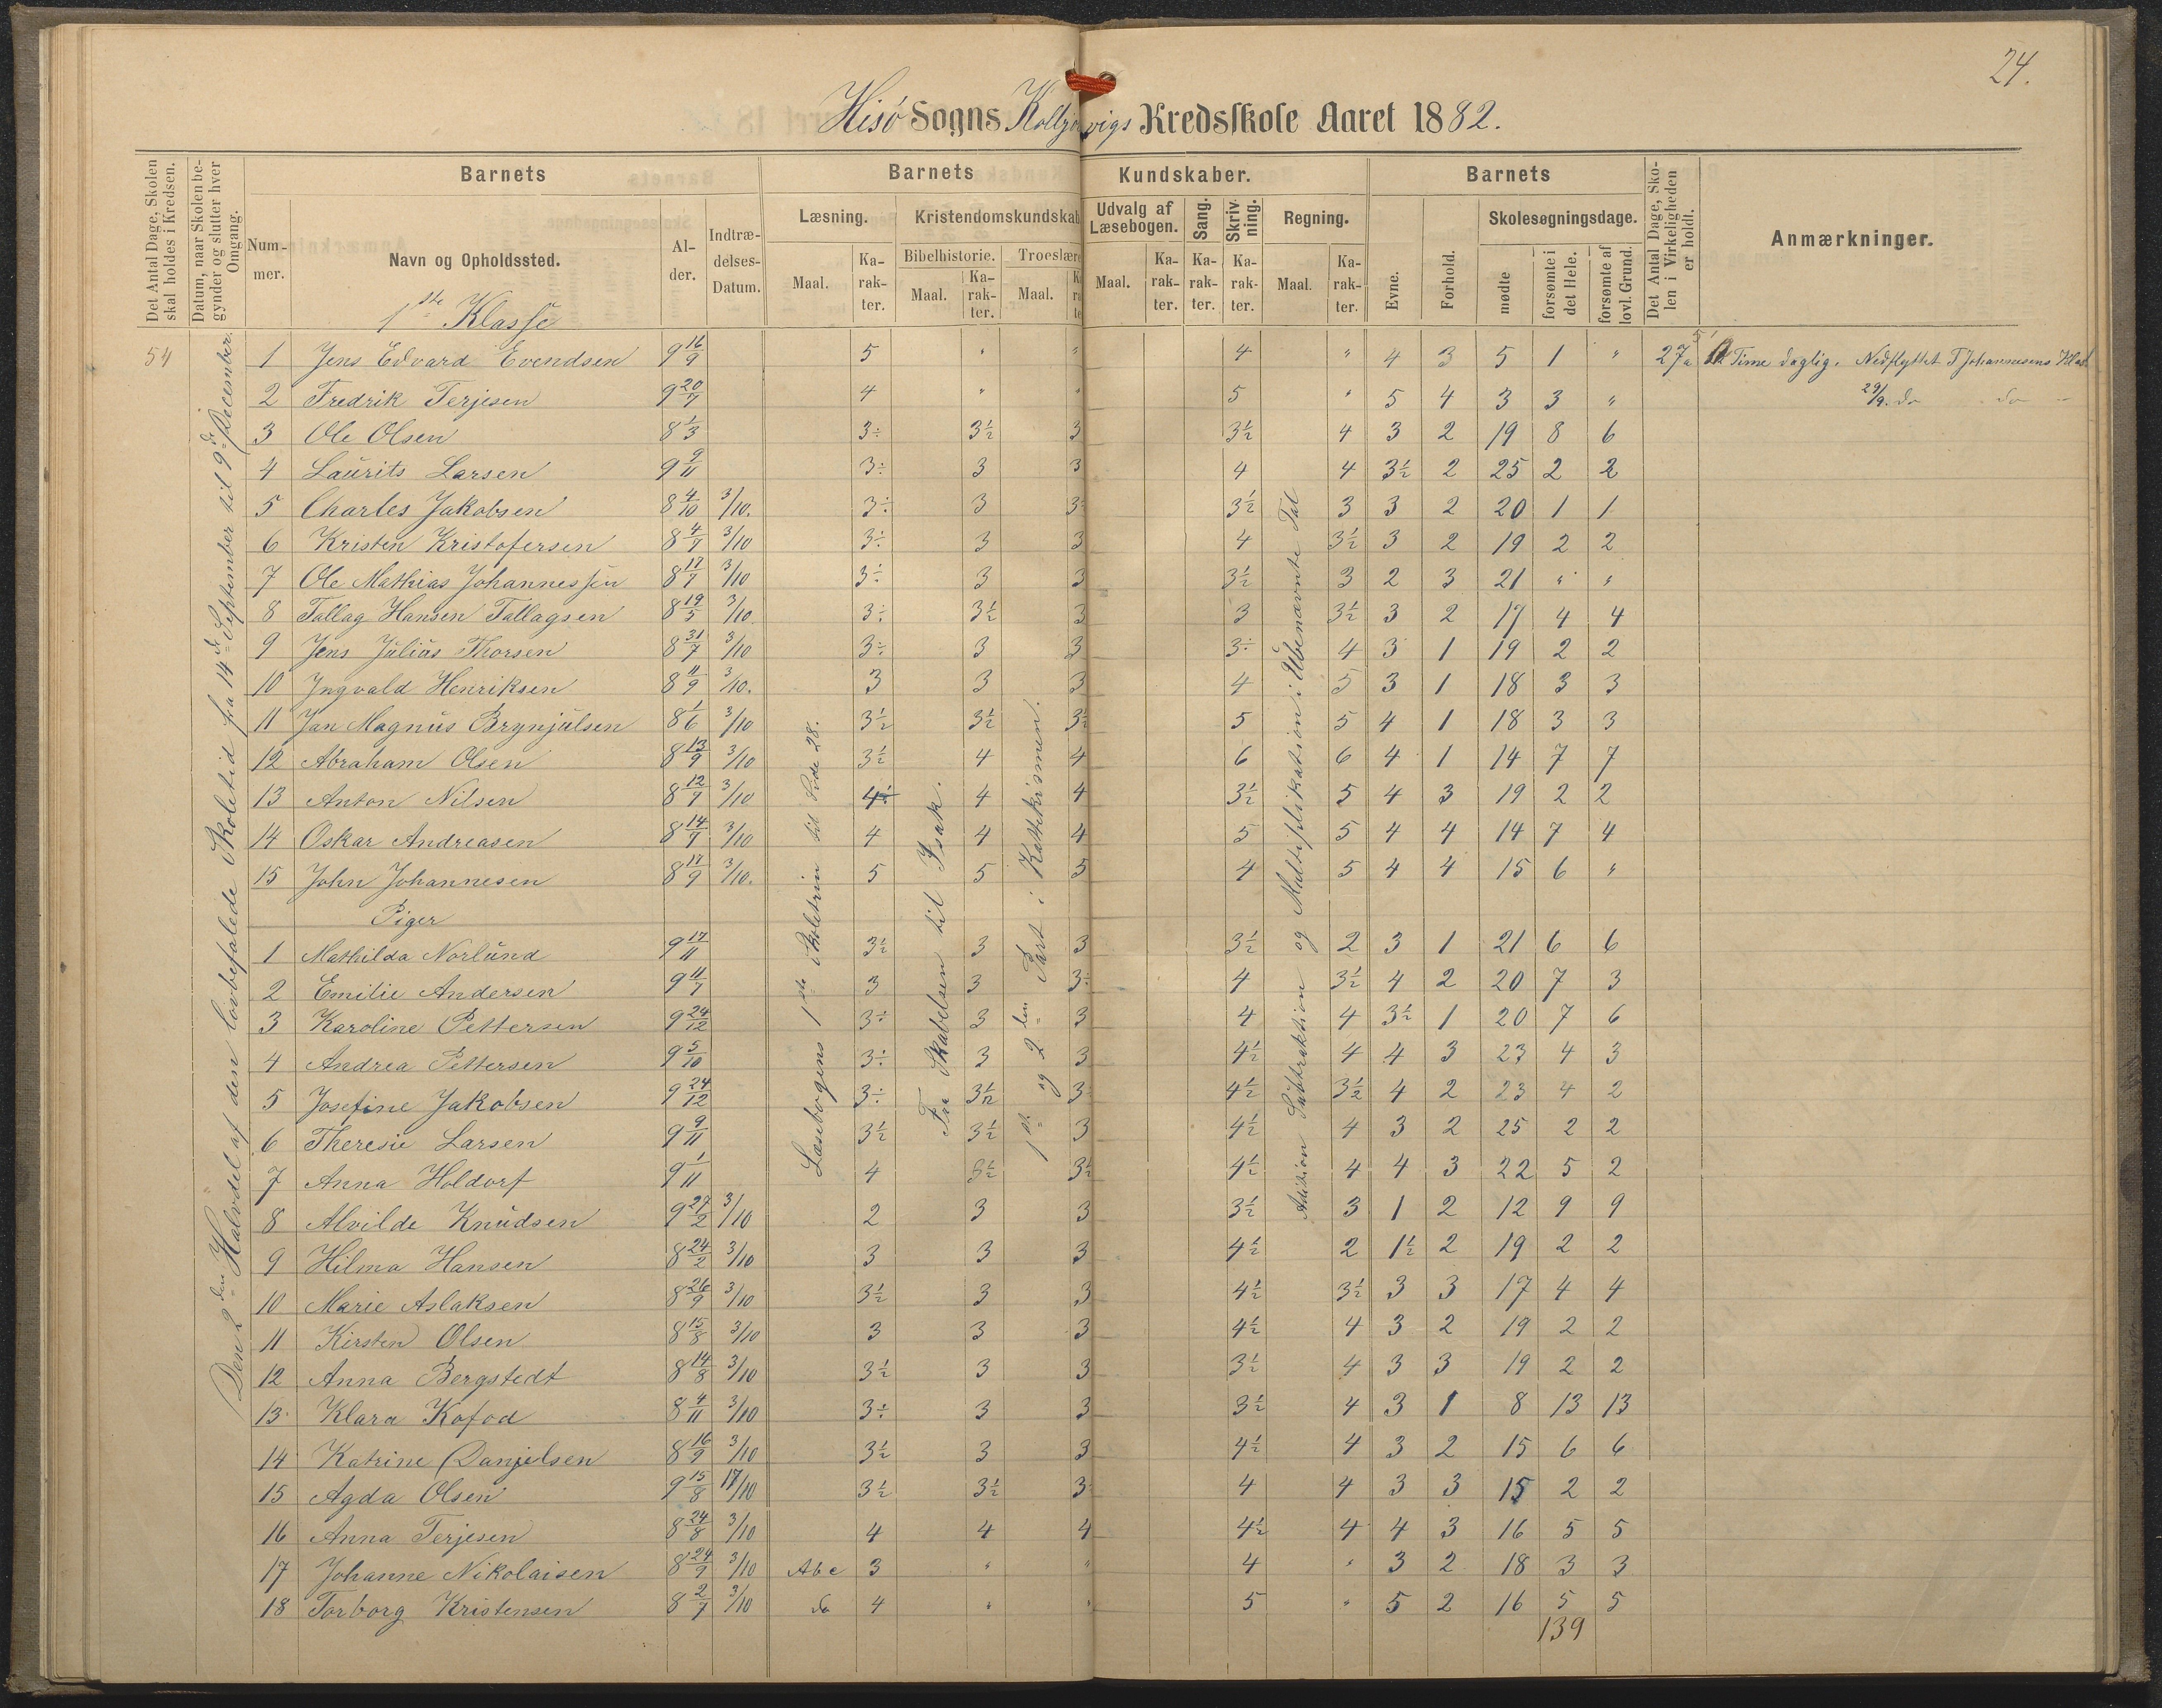 24.
Hisö Sogns Kolbjørnsvigs Kredsskole Aaret 1882.
Det Antal Dage, Skolen skal holdes i Kredsen.
Datum, naar Skolen begynder og slutter hver Omgang.
Barnets
Nummer.
Navn og Opholdssted.
Alder.
Indtrædelses-Datum.
Barnets
Kundskaber.
Læsning.
Maal.
Karakter.
Kristendomskundskab
Bibelhistorie.
Maal.
Karakter.
Troeslære
Maal.
Udvalg af Læsebogen.
Maal.
Karakter.
Sang.
Karakter.
Skrivning.
Karakter.
Regning.
Maal.
Karakter.
Barnets
Evne.
Forhold.
Skolesøgningsdage.
mødte
forsømte i det Hele.
forsømte af lovl. Grund.
Det Antal Dage, Skolen i Virkeligheden er holdt.
Anmærkninger.
1ste Klasse
54
Den 2den Halvdel af den lovbefalede Skoletid fra 14de September til 9de December.
Læsebogens 1ste Skoletrin til Side 28.
Fra Skabelsen til Isak.
1ste og 2den Part i Katekismen.
Adition Subtraktion og Multiplikation i Ubenævnte Tal
1 Jens Edvard Evendsen 9 16/9 5 " " 4 " 4 3 5 1 " 27 Time daglig. Nedflyttet T Johannesens Klas
2 Fredrik Terjesen 9 20/7 4 " " 5 " 5 4 3 3 " 29/9. do do
3 Ole Olsen 8 1/3 3÷ 3½ 3 3½ 4 3 2 19 8 6
4 Laurits Larsen 9 9/11 3÷ 3 3 4 4 3½ 2 25 2 2
5 Charles Jakobsen 8 4/10 3/10. 3÷ 3 3÷ 3½ 3 3 2 20 1 1
6 Kristen Kristofersen 8 4/7 3/10 3÷ 3 3 4 3½ 3 2 19 2 2
7 Ole Mathias Johannessen 8 17/7 3/10 3÷ 3 3 3½ 3 2 3 21 " "
8 Tallag Hansen Tallagsen 8 19/5 3/10. 3÷ 3½ 3 3 3½ 3 2 17 4 4
9 Jens Julius Thorsen 8 31/7 3/10 3÷ 3 3 3÷ 4 3 1 19 2 2
10 Ingvald Henriksen 8 11/9 3/10. 3 3 3 4 5 3 1 18 3 3
11 Jan Magnus Brynjulsen 8 1/6 3/10 3½ 3½ 3½ 5 5 4 1 18 3 3
12 Abraham Olsen 8 13/9 3/10 3½ 4 4 6 6 4 1 14 7 7
13 Anton Nilsen 8 12/7 3/10 4÷ 4 4 3½ 5 4 3 19 2 2
14 Oskar Andreasen 8 14/7 3/10 4 4 4 5 5 4 4 14 7 4
15 John Johannesen 8 17/9 3/10. 5 5 5 4 5 4 4 15 6 "
Piger
1 Mathilda Norlund 9 17/11 3½ 3 3 3½ 2 3 1 21 6 6
2 Emilie Andersen 9 11/7 3 3 3÷ 4 3½ 4 2 20 7 3
3 Karoline Pettersen 9 24/12 3÷ 3 3 4 4 3½ 1 20 7 6
4 Andrea Pettersen 9 5/10 3÷ 3 3 4½ 4 4 3 23 4 3
5 Josefine Jakobsen 9 24/12 3÷ 3½ 3 4½ 3½ 4 2 23 4 2
6 Theresie Larsen 9 9/11 3½ 3½ 3 4½ 4 3 2 25 2 2
7 Anna Holdorf 9 1/11 4 3½ 3½ 4½ 4 4 3 22 5 2
8 Alvilde Knudsen 9 27/2 3/10 2 3 3 3½ 3 1 2 12 9 9
9 Hilma Hansen 8 24/2 3/10 3 3 3 4½ 2 1½ 2 19 2 2
10 Marie Aslaksen 8 26/9 3/10 3½ 3 3 4½ 3½ 3 3 17 4 4
11 Kirsten Olsen 8 15/8 3/10 3 3 3 4½ 4 3 2 19 2 2
12 Anna Bergstedt 8 14/8 3/10 3½ 3 3 3½ 4 3 3 19 2 2
13 Klara Kofod 8 4/11 3/10 3÷ 3 3 3½ 4 3 1 8 13 13
14 Katrine Danjelsen 8 16/9 3/10 3½ 3 3 4½ 4 3 2 15 6 6
15 Agda Olsen 9 15/8 17/10 3½ 3½ 3 4 4 3 3 15 2 2
16 Anna Terjesen 8 24/8 3/10 4 4 4 4½ 4 4 3 16 5 5
17 Johanne Nikolaisen 8 24/9 3/10 Abc 3 " " 4 " 3 2 18 3 3
18 Torborg Kristensen 8 2/7 3/10 do 4 " " 5 " 5 2 16 5 5
139